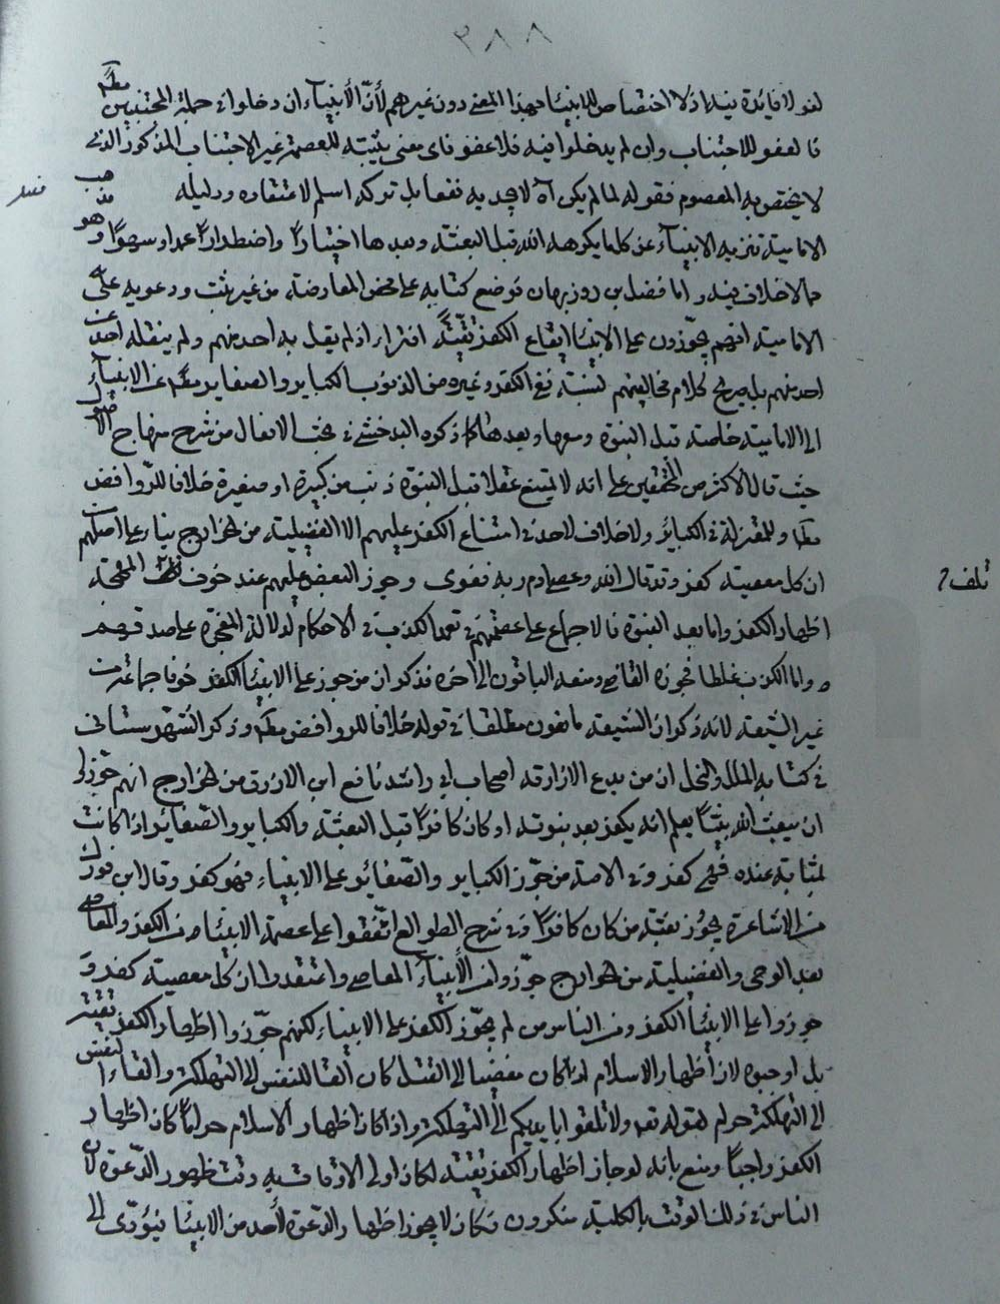 ٣٨٨
لغو لا فائدة فيه اذ لا اختصاص للانبياء بهذا المعنى دون غيرهم لأنّ الأنبياء ان دخلوا في جملة المجتنبين
فالعفو للاجتناب وان لم يدخلوا فيه فلا عفو فاى معنى يثبته للعصمة غير الاجتناب المذكور الذى
لا يختص به المعصوم فقوله لما لم يكن اه لا يجديه نفعا بل تركه اسلم لاعتقاده ودليله
الامامية تنزيه الانبياء عن كلما يكرهه الله قبل البعثة وبعدها اختيارًا واضطرارًا عمدا وسهوًا وهو
مما لا خلاف فيه واما فضل بن روزبهان فوضع كتابه على محض المعارضة من غير تثبت ودعويه على
الامامية انهم يجوّزون على الانبياء ايقاع الكفر تقيّةً افتراء اذ لم يقل به احد منهم ولم ينقله احد عن
احد منهم بل صريح كلام مخالفيهم نسبة نفى الكفر وغيره من الذنوب الكباير والصغاير مطلقا عن الانبياء
الى الامامية خاصة قبل النبوة ومعها وبعدها كما ذكره البدخشى في بحث الافعال من شرح منهاج الأصول
حيث قال الاكثر من المحققين على انه لا يمتنع عقلا قبل النبوة ذنب من كبيرة او صغيرة خلافا للروافض
مطلقا وللمعتزلة في الكبائر ولا خلاف لاحد في امتناع الكفر عليهم الا الفضيلية من الخوارج بناء على اصلهم
ان كل معصية كفر وقد قال الله وعصى ادم ربه فغوى وجوز البعض عليهم عند خوف تلف المهجة
تلف
اظهار الكفر واما بعد النبوة فالاجماع على عصمتهم في تعمد الكذب في الأحكام لدلالة المعجزة على صدقهم
واما الكذب غلطا فجوزه القاضى ومنعه الباقون الى اخره فذكر ان من جوز على الانبياء الكفر خوفا جماعة من
غير الشيعة لانه ذكر ان الشيعة مانعون مطلقا في قوله خلافا للروافض مطلقا وذكر الشهرستانى
في كتابه الملل والنحل ان من بدع الازارقة اصحاب ابى راشد نافع ابن الازرق من الخوارج انهم جوّزوا
ان يبعث الله نبيًّا يعلم انه يكفر بعد نبوته او كان كافرًا قبل البعثة والكباير والصغائر اذا كانت
بمثابة عنده فهى كفر وفي الامة من جوّز الكباير والصغائر على الانبياء فهو كفر وقال ابن فورك
من الاشاعرة يجوز بعثة من كان كافرًا وفى شرح الطوالع اتفقوا على عصمة الانبياء من الكفر والمعاصى
بعد الوحى والفضيلية من الخوارج جوّزوا من الأنبياء المعاصى واعتقدوا ان كل معصية كفر و
جوزوا على الانبياء الكفر ومن الناس من لم يجوّز الكفر على الانبياء لكنهم جوّزوا اظهار الكفر تقية
بل اوجبوه لان أظهار الاسلام اذا كان مفضيا الى القتل كان القاء للنفس الى التهلكة والقاء النفس
الى التهلكة حرام لقوله تعالى ولا تلقوا بايديكم الى التهلكة واذا كان اظهار الاسلام حرامًا كان اظهار
الكفر واجبًا ومنع بانه لو جاز اظهار الكفر تقية لكان اولى الاوقات به وقت ظهور الدعوة لان
الناس في ذلك الوقت بالكلية منكرون فكان لا يجوز اظهار الدعوة لأحد من الانبياء فيؤدّى الى